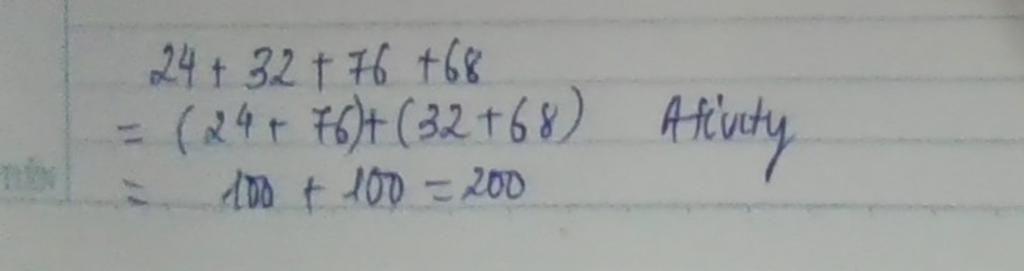 24 + 32 + 76 + 68
= (24 + 76) + (32 + 68) Afivity
= 100 + 100 = 200